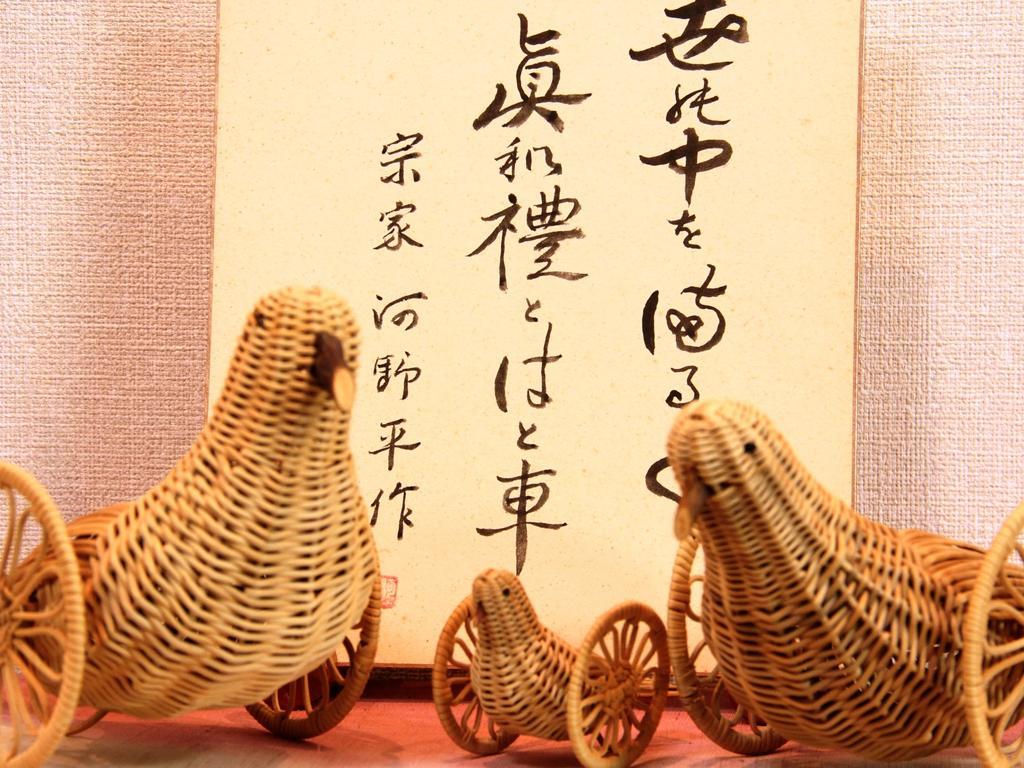 世の中を満る
眞和禮とはと車
宗家 河野平作